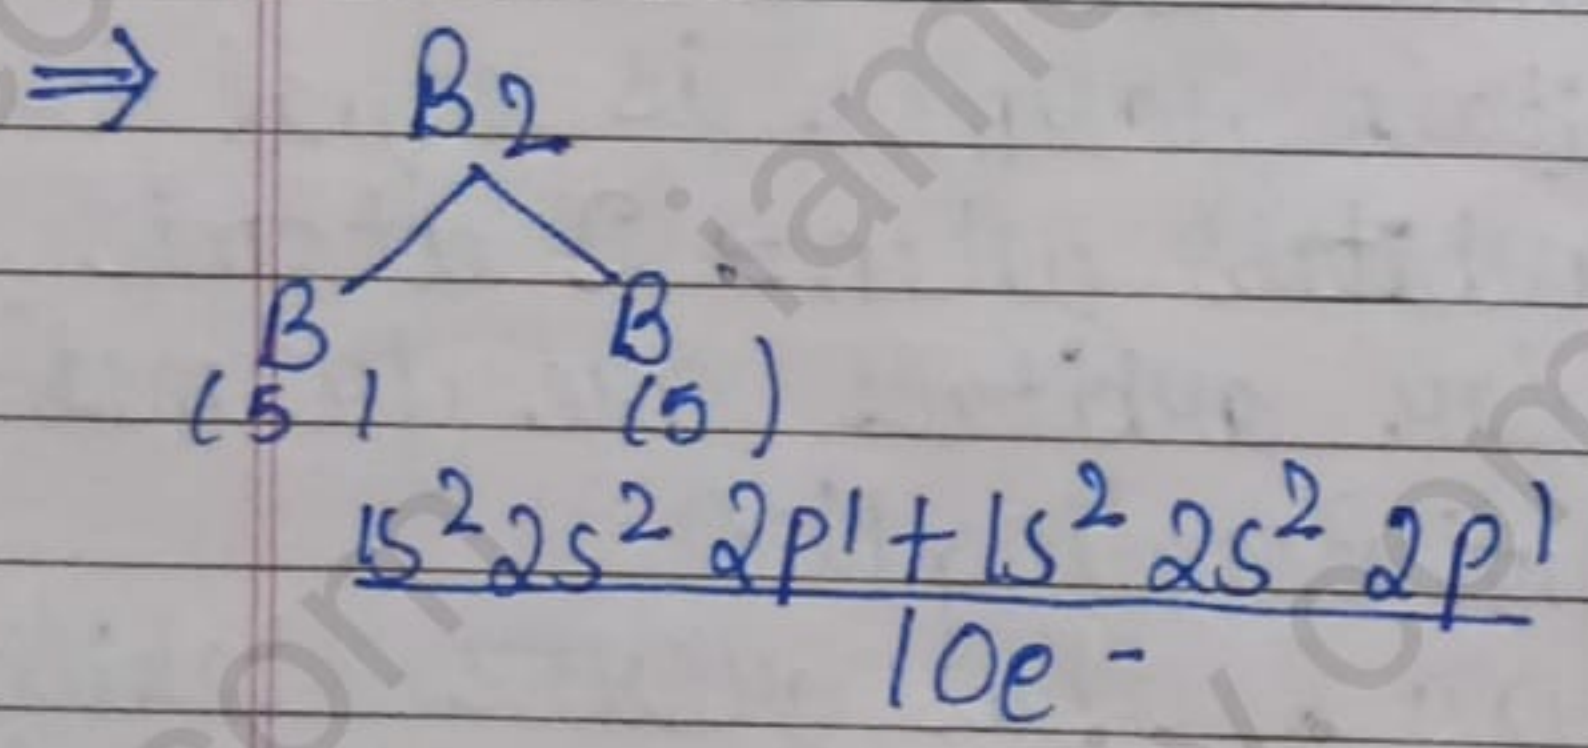 ⇒ B₂
B B
(5) (5)
1s² 2s² 2p¹ + 1s² 2s² 2p¹
10e⁻